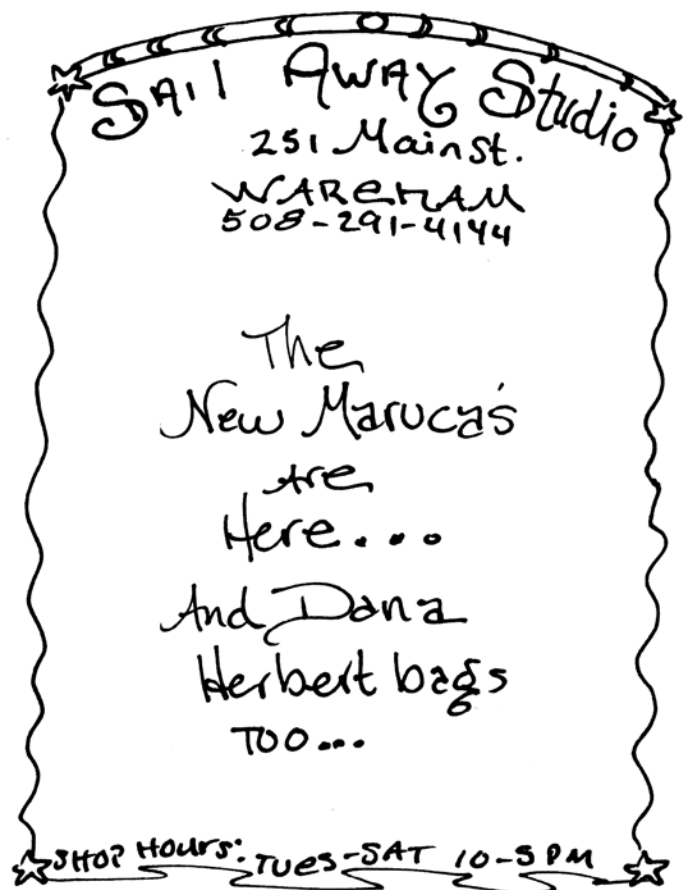 Sail Away Studio
251 Main St.
WAREHAM
508-291-4144
The
New Maruca's
Are
Here...
And Dana
Herbert bags
TOO...
SHOP HOURS: TUES-SAT 10-5 PM